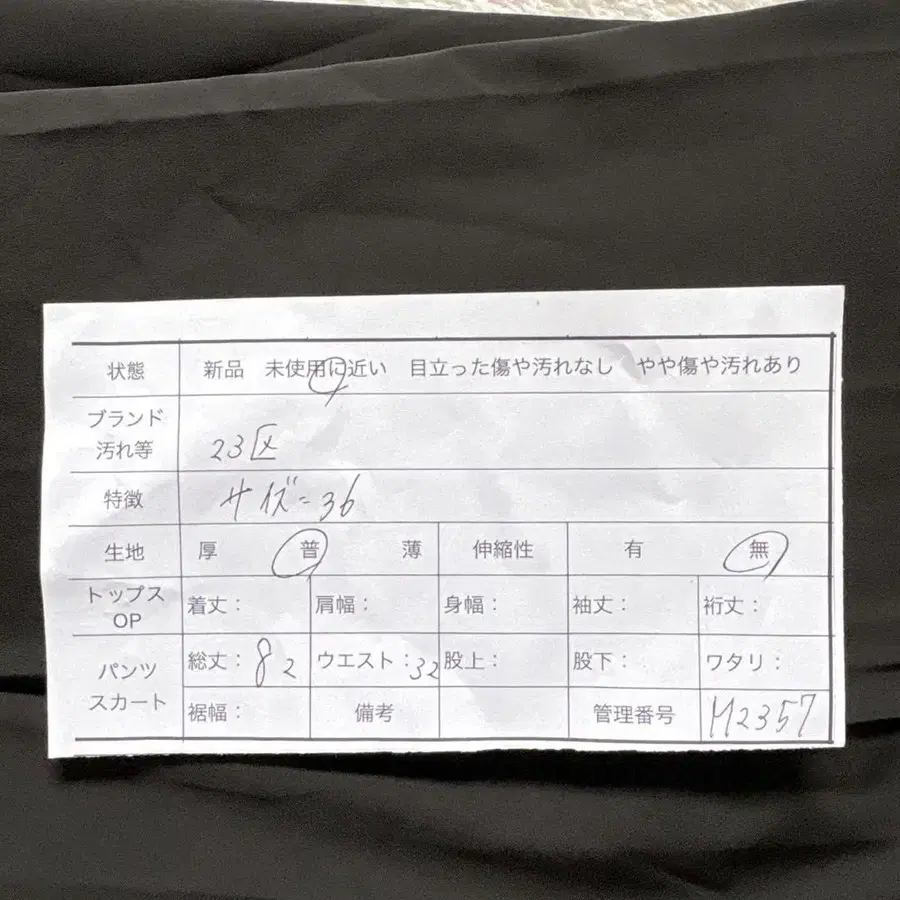 状態 新品 未使用に近い 目立った傷や汚れなし やや傷や汚れあり
ブランド
汚れ等 23区
特徴 サイズ-36
生地 厚 普 薄 伸縮性 有 無
トップス
OP 着丈: 肩幅: 身幅: 袖丈: 裄丈:
パンツ
スカート 総丈:82 ウエスト:32 股上: 股下: ワタリ:
裾幅: 備考 管理番号 H2357